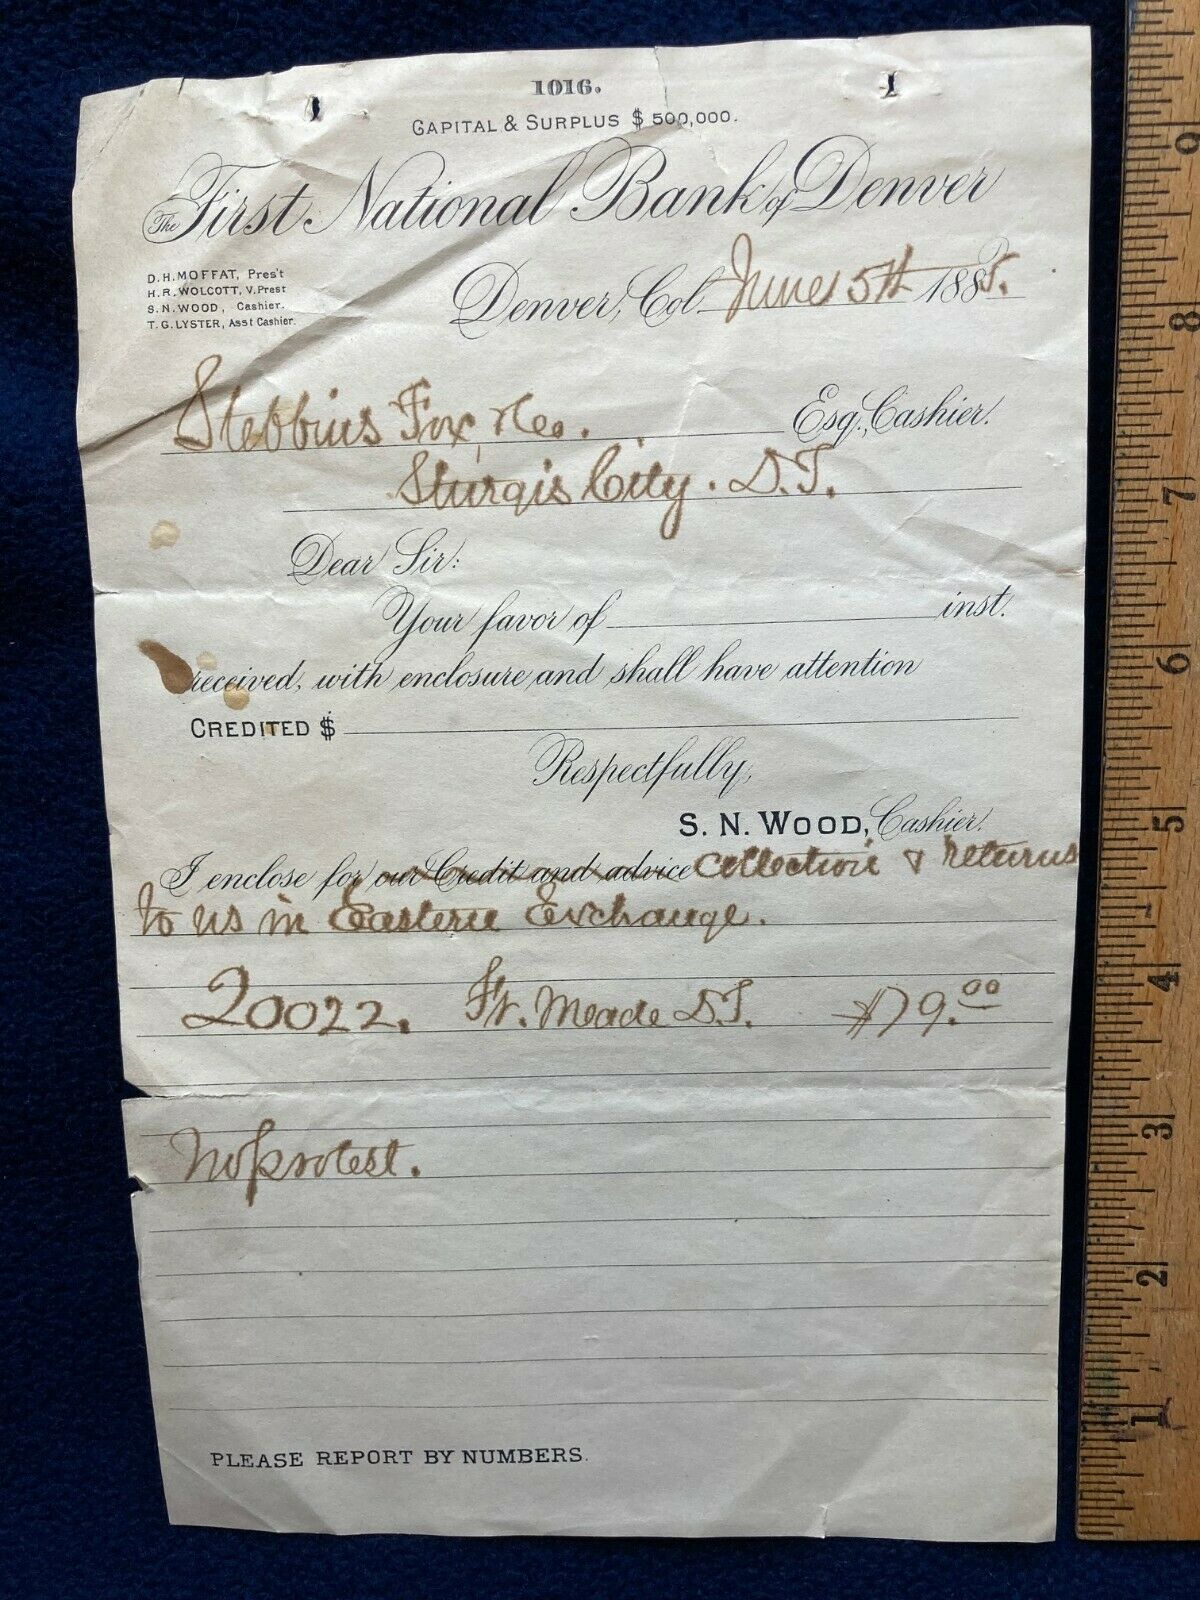 1016.
CAPITAL & SURPLUS $ 500,000.
The First National Bank of Denver
D. H. MOFFAT, Pres't
H. R. WOLCOTT, V. Prest
S. N. WOOD, Cashier.
T. G. LYSTER, Asst Cashier.
Denver, Col. June 5th 1885.
Stebbins Fox, & Co. Esq., Cashier.
Sturgis City. D.T.
Dear Sir:
Your favor of inst.
received, with enclosure and shall have attention
CREDITED $
Respectfully,
S. N. WOOD, Cashier.
I enclose for our Credit and advice Collection & returns
to us in Eastern Exchange.
20022. Ft. Meade D.T. $79.00
No protest.
PLEASE REPORT BY NUMBERS.
9
8
7
6
5
4
3
2
1